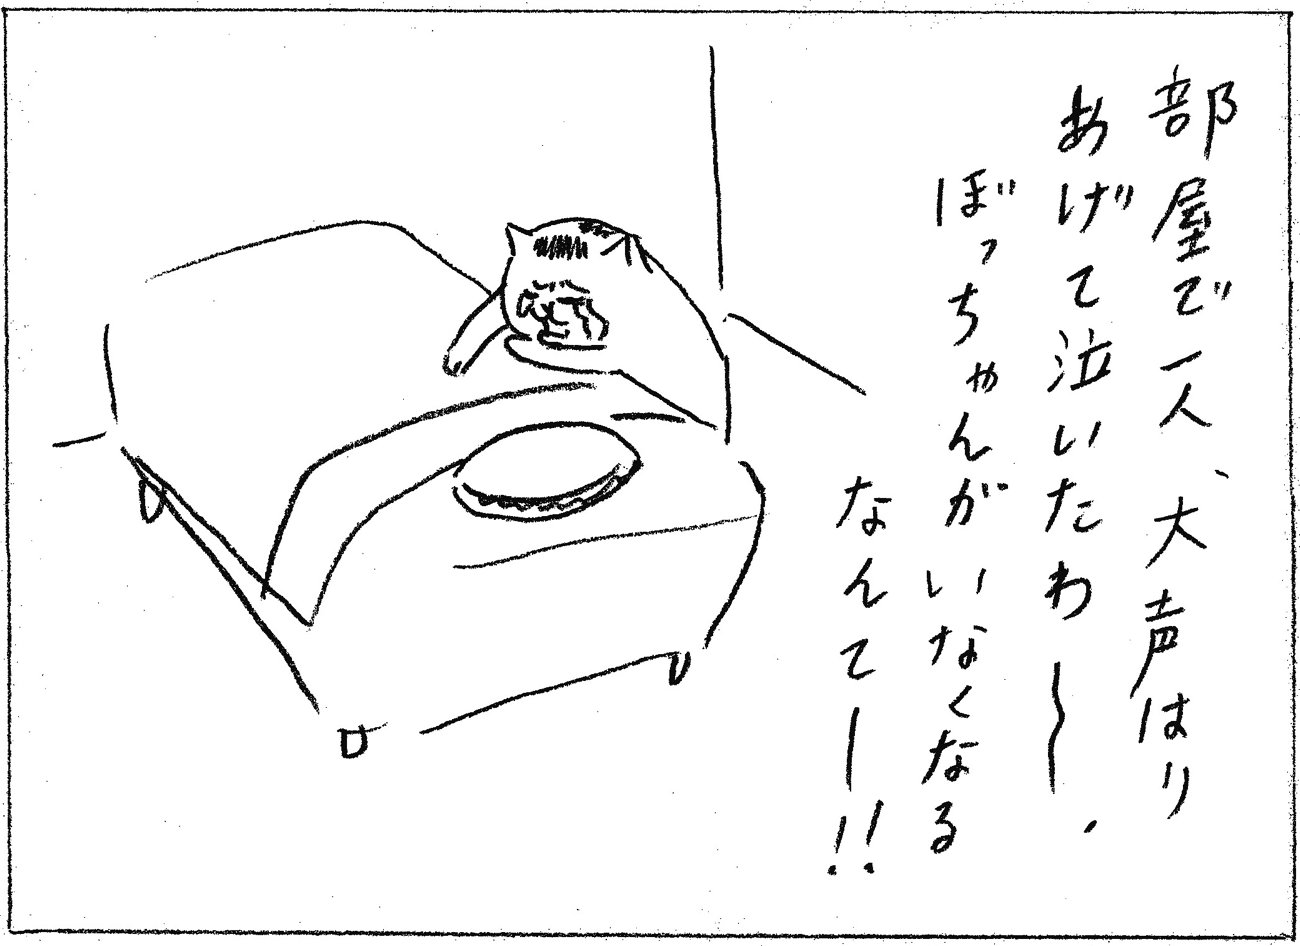 部屋で一人、大声はり
あげて泣いたわ〜.
ぼっちゃんがいなくなる
なんてー!!